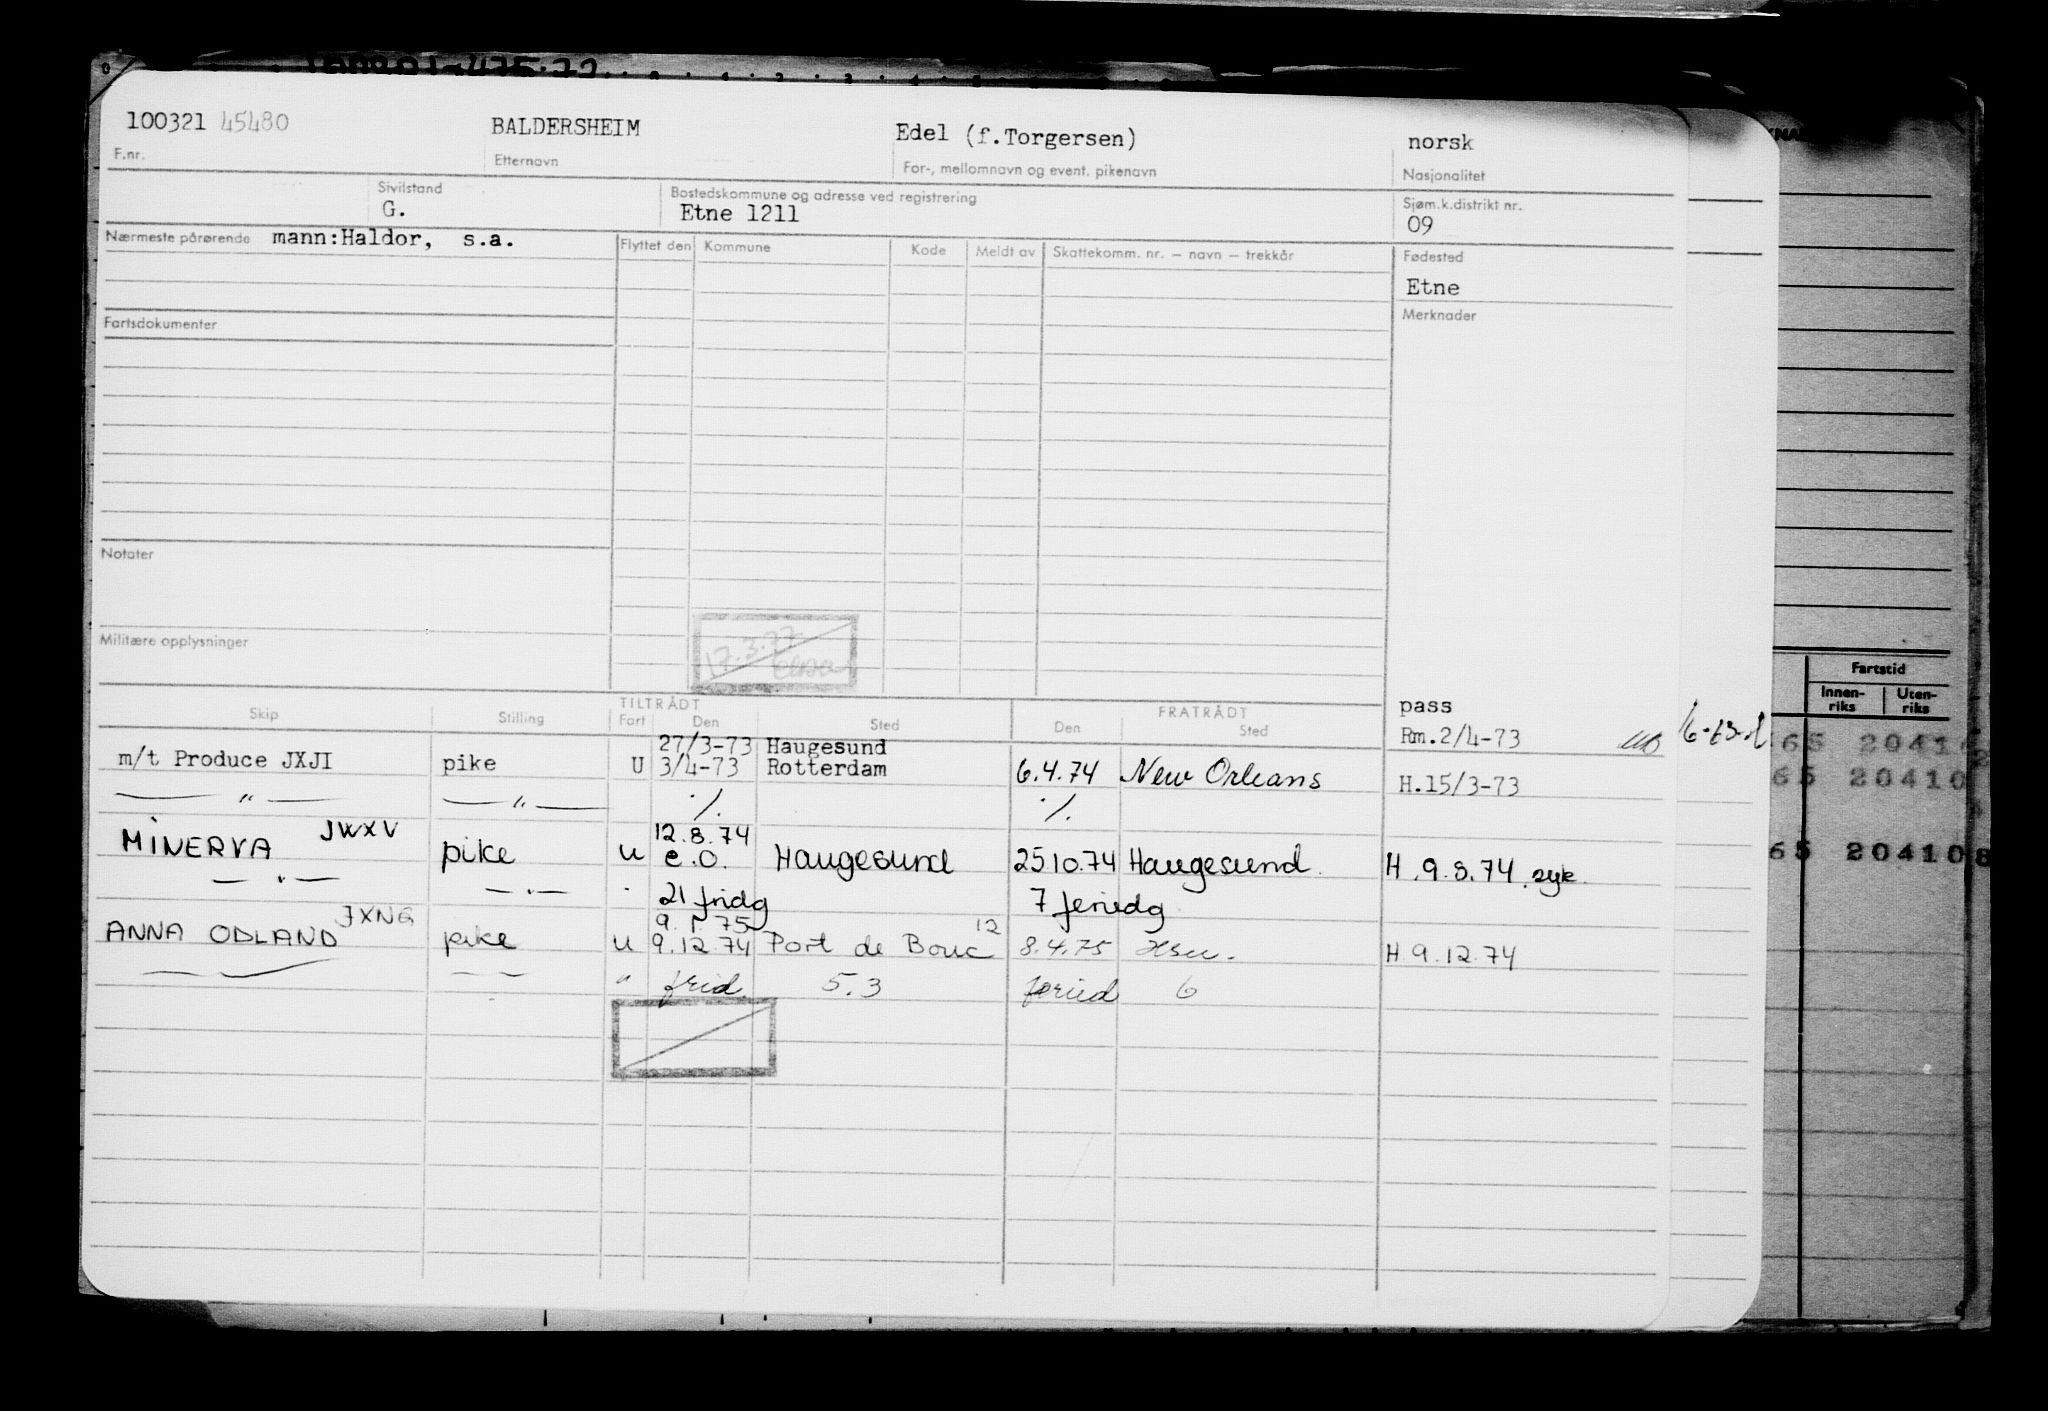 100321 45480 BALDERSHEIM Edel (f.Torgersen) norsk
F.nr. Etternavn For-, mellomnavn og event. pikenavn Nasjonalitet
Sivilstand Bostedskommune og adresse ved registrering Sjøm.k.distrikt nr.
G. Etne 1211 09
Nærmeste pårørende mann:Haldor, s.a. Flyttet den Kommune Kode Meldt av Skattekomm. nr. — navn — trekkår Fødested
Etne
Fartsdokumenter Merknader
Notater
17.3.77
Militære opplysninger
Skip Stilling TILTRÅDT FRATRÅDT pass
Fart Den Sted Den Sted Rm.2/4-73
27/3-73 Haugesund
m/t Produce JXJI pike U 3/4-73 Rotterdam 6.4.74 New Orleans H.15/3-73
— " — — " — ·/. ·/.
JWXV 12.8.74
MINERVA pike U e.o. Haugesund 25 10.74 Haugesund. H.9.8.74. syk.
— " — — " — " 21 fridg 7 feriedg
JXNG 9.1.75 12
ANNA ODLAND pike U 9.12.74 Port de Bouc 8.4.75 H.9.12.74
" frid 5.3 feried 6
Fartstid
Innen-riks Uten-riks
65 2041
65 20410
65 204108